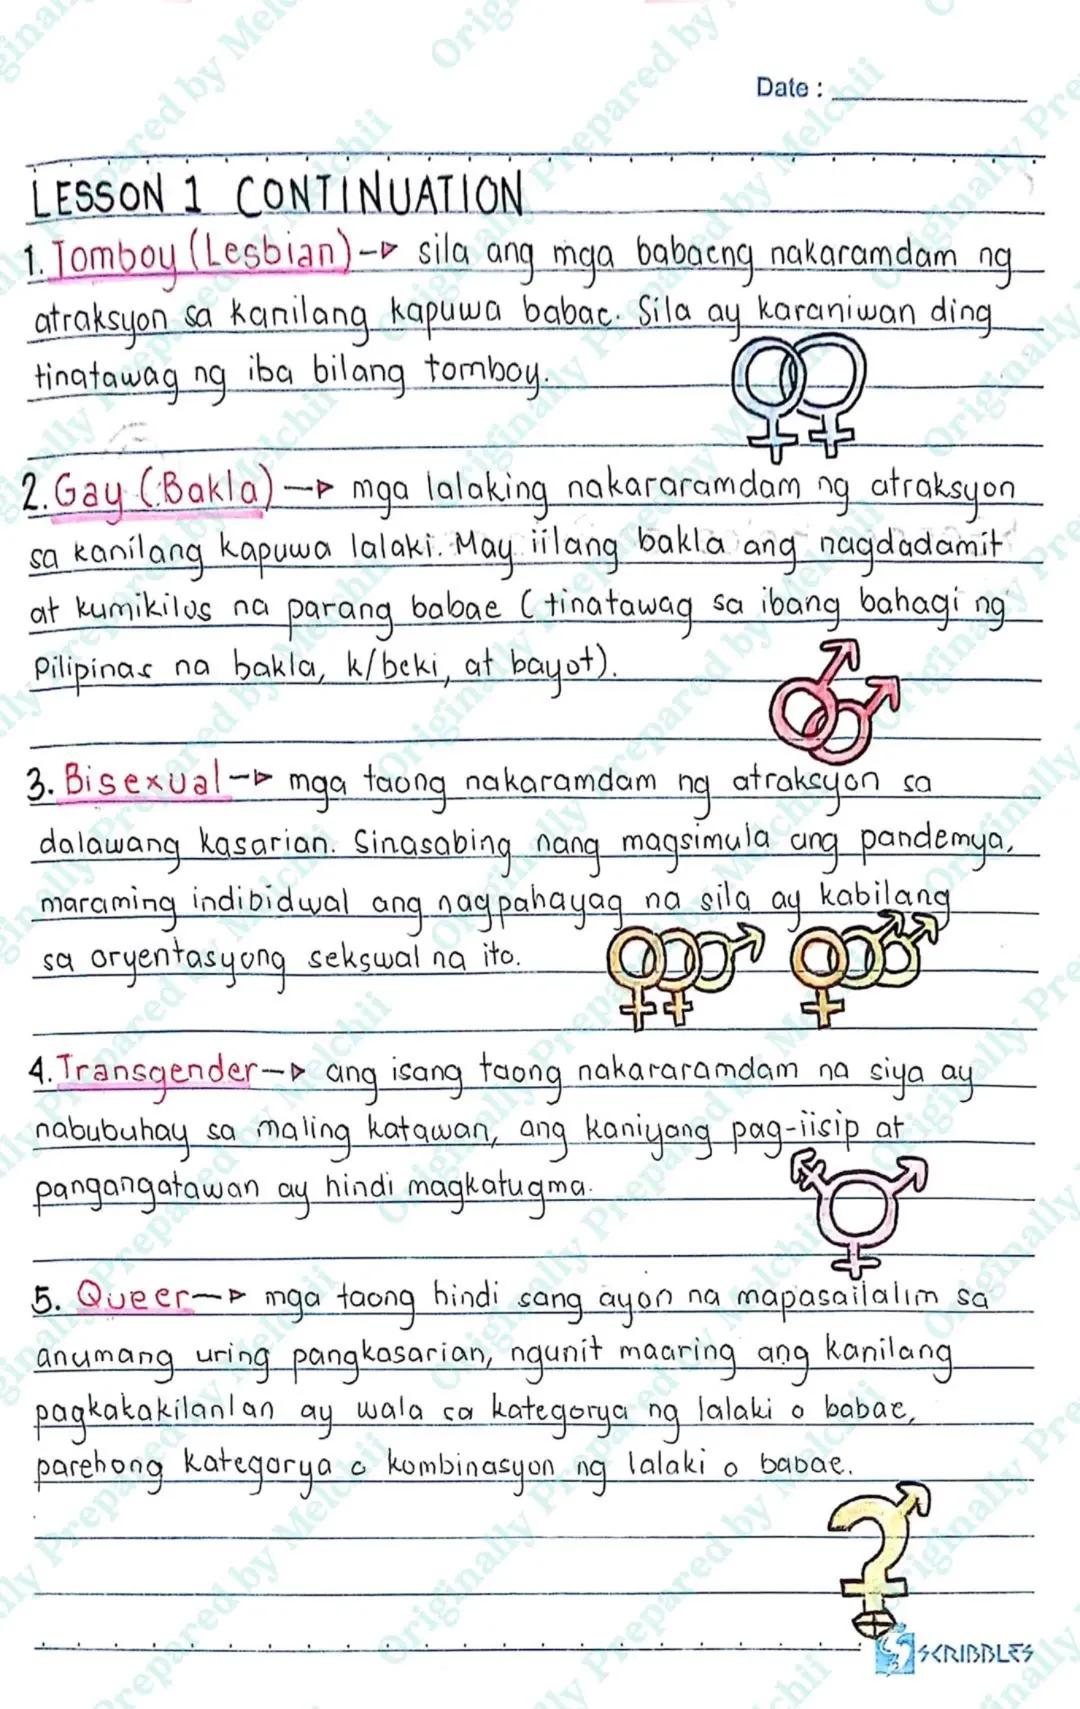 Date :
LESSON 1 CONTINUATION
1. Tomboy (Lesbian) → sila ang mga babaeng nakaramdam ng
atraksyon sa kanilang kapuwa babae. Sila ay karaniwan ding
tinatawag ng iba bilang tomboy.
2. Gay (Bakla) → mga lalaking nakararamdam ng atraksyon
sa kanilang kapuwa lalaki. May iilang bakla ang nagdadamit
at kumikilos na parang babae (tinatawag sa ibang bahagi ng
Pilipinas na bakla, k/beki, at bayot).
3. Bisexual → mga taong nakaramdam ng atraksyon sa
dalawang kasarian. Sinasabing nang magsimula ang pandemya,
maraming indibidwal ang nagpahayag na sila ay kabilang
sa oryentasyong sekswal na ito.
4. Transgender → ang isang taong nakararamdam na siya ay
nabubuhay sa maling katawan, ang kaniyang pag-iisip at
pangangatawan ay hindi magkatugma.
5. Queer → mga taong hindi sang ayon na mapasailalim sa
anumang uring pangkasarian, ngunit maaring ang kanilang
pagkakakilanlan ay wala sa kategorya ng lalaki o babae,
parehong kategorya o kombinasyon ng lalaki o babae.
SCRIBBLES
Originally Prepared by Melchii